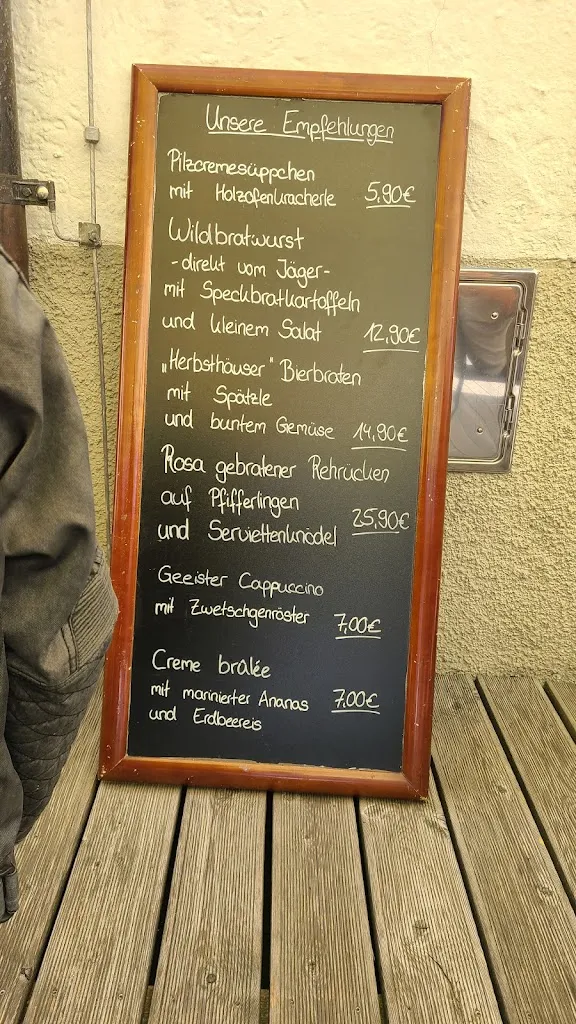 Unsere Empfehlungen
Pilzcremesüppchen
mit Holzofenkracherle 5,90€
Wildbratwurst
-direkt vom Jäger-
mit Speckbratkartoffeln
und kleinem Salat 12,90€
„Herbsthäuser" Bierbraten
mit Spätzle
und buntem Gemüse 14,90€
Rosa gebratener Rehrücken
auf Pfifferlingen
und Serviettenknödel 25,90€
Geeister Cappuccino
mit Zwetschgenröster 7,00€
Creme brûlée
mit marinierter Ananas 7,00€
und Erdbeereis